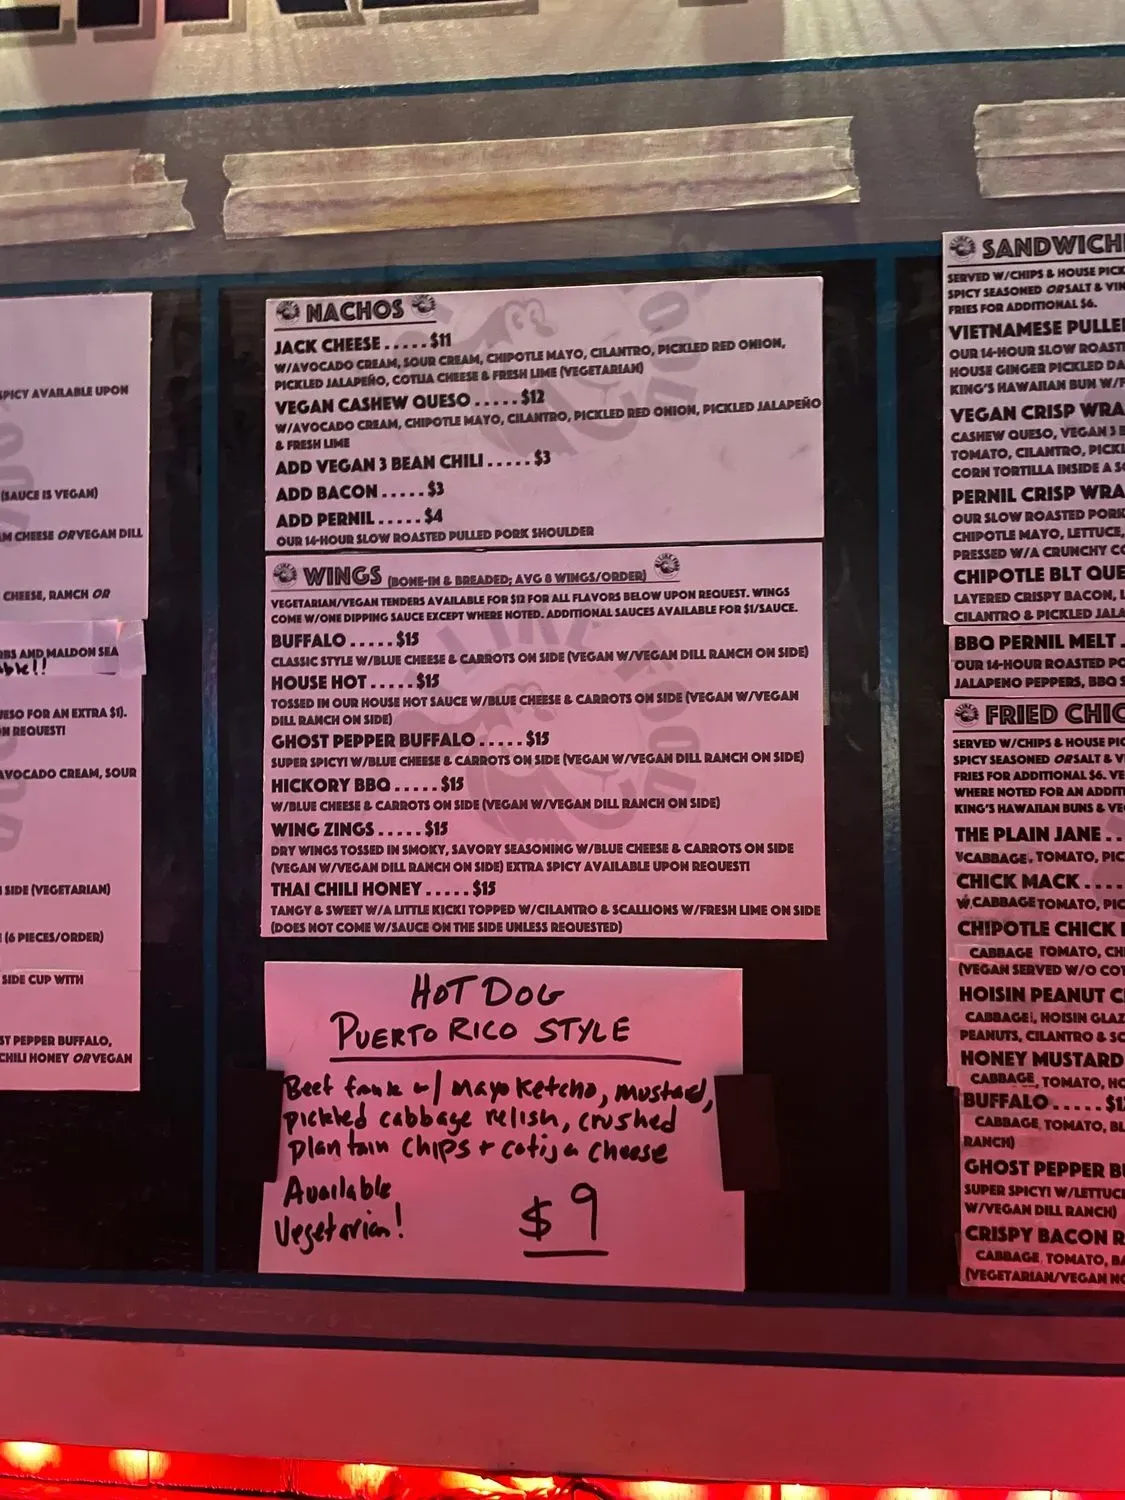 SPICY AVAILABLE UPON
(SAUCE IS VEGAN)
CHEESE OR VEGAN DILL
CHEESE, RANCH OR
AND MALDON SEA
FOR AN EXTRA $1).
REQUEST!
AVOCADO CREAM, SOUR
SIDE (VEGETARIAN)
(6 PIECES/ORDER)
SIDE CUP WITH
PEPPER BUFFALO,
CHILI HONEY OR VEGAN
NACHOS
JACK CHEESE.....$11
W/AVOCADO CREAM, SOUR CREAM, CHIPOTLE MAYO, CILANTRO, PICKLED RED ONION,
PICKLED JALAPEÑO, COTIJA CHEESE & FRESH LIME (VEGETARIAN)
VEGAN CASHEW QUESO.....$12
W/AVOCADO CREAM, CHIPOTLE MAYO, CILANTRO, PICKLED RED ONION, PICKLED JALAPEÑO
& FRESH LIME
ADD VEGAN 3 BEAN CHILI.....$3
ADD BACON.....$3
ADD PERNIL.....$4
OUR 14-HOUR SLOW ROASTED PULLED PORK SHOULDER
WINGS (BONE-IN & BREADED; AVG 8 WINGS/ORDER)
VEGETARIAN/VEGAN TENDERS AVAILABLE FOR $12 FOR ALL FLAVORS BELOW UPON REQUEST. WINGS
COME W/ONE DIPPING SAUCE EXCEPT WHERE NOTED. ADDITIONAL SAUCES AVAILABLE FOR $1/SAUCE.
BUFFALO.....$15
CLASSIC STYLE W/BLUE CHEESE & CARROTS ON SIDE (VEGAN W/VEGAN DILL RANCH ON SIDE)
HOUSE HOT.....$15
TOSSED IN OUR HOUSE HOT SAUCE W/BLUE CHEESE & CARROTS ON SIDE (VEGAN W/VEGAN
DILL RANCH ON SIDE)
GHOST PEPPER BUFFALO.....$15
SUPER SPICY! W/BLUE CHEESE & CARROTS ON SIDE (VEGAN W/VEGAN DILL RANCH ON SIDE)
HICKORY BBQ.....$15
W/BLUE CHEESE & CARROTS ON SIDE (VEGAN W/VEGAN DILL RANCH ON SIDE)
WING ZINGS.....$15
DRY WINGS TOSSED IN SMOKY, SAVORY SEASONING W/BLUE CHEESE & CARROTS ON SIDE
(VEGAN W/VEGAN DILL RANCH ON SIDE) EXTRA SPICY AVAILABLE UPON REQUEST!
THAI CHILI HONEY.....$15
TANGY & SWEET W/A LITTLE KICK! TOPPED W/CILANTRO & SCALLIONS W/FRESH LIME ON SIDE
(DOES NOT COME W/SAUCE ON THE SIDE UNLESS REQUESTED)
HOT DOG
PUERTO RICO STYLE
Beef frank w/ mayo Ketchp, mustard,
pickled cabbage relish, crushed
plantain chips + cotija cheese
Available
Vegetarian!
$9
SANDWICH
SERVED W/CHIPS & HOUSE PICK
SPICY SEASONED OR SALT & VIN
FRIES FOR ADDITIONAL $6.
VIETNAMESE PULLE
OUR 14-HOUR SLOW ROAST
HOUSE GINGER PICKLED DA
KING'S HAWAIIAN BUN W/F
VEGAN CRISP WRA
CASHEW QUESO, VEGAN 3 B
TOMATO, CILANTRO, PICKL
CORN TORTILLA INSIDE A S
PERNIL CRISP WRA
OUR SLOW ROASTED PORK
CHIPOTLE MAYO, LETTUCE,
PRESSED W/A CRUNCHY CO
CHIPOTLE BLT QUE
LAYERED CRISPY BACON, L
CILANTRO & PICKLED JALA
BBQ PERNIL MELT.
OUR 14-HOUR ROASTED PO
JALAPENO PEPPERS, BBQ S
FRIED CHIC
SERVED W/CHIPS & HOUSE PIC
SPICY SEASONED OR SALT & V
FRIES FOR ADDITIONAL $6. VE
WHERE NOTED FOR AN ADDIT
KING'S HAWAIIAN BUNS & VE
THE PLAIN JANE..
CABBAGE, TOMATO, PIC
CHICK MACK....
W/CABBAGE TOMATO, PIC
CHIPOTLE CHICK
CABBAGE TOMATO, CH
(VEGAN SERVED W/O COT
HOISIN PEANUT C
CABBAGE, HOISIN GLAZ
PEANUTS, CILANTRO & SC
HONEY MUSTARD
CABBAGE, TOMATO, HO
BUFFALO.....$1
CABBAGE, TOMATO, BL
RANCH)
GHOST PEPPER B
SUPER SPICY! W/LETTUC
W/VEGAN DILL RANCH)
CRISPY BACON R
CABBAGE, TOMATO, BA
(VEGETARIAN/VEGAN NO